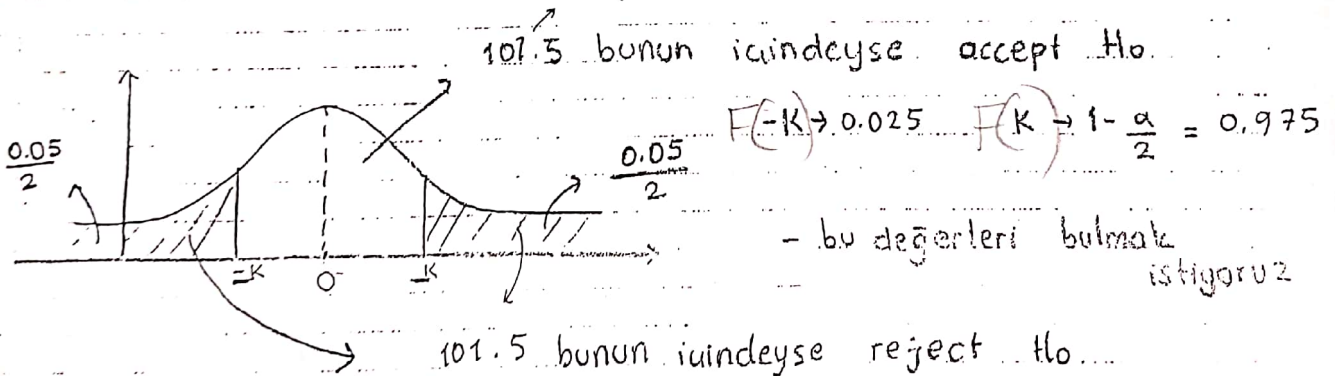 101.5 bunun icindeyse accept Ho
F(-K) → 0.025 F(K) → 1 - α/2 = 0.975
0.05/2
0.05/2
- bu değerleri bulmak
istiyoruz
-K 0 K
101.5 bunun icindeyse reject Ho